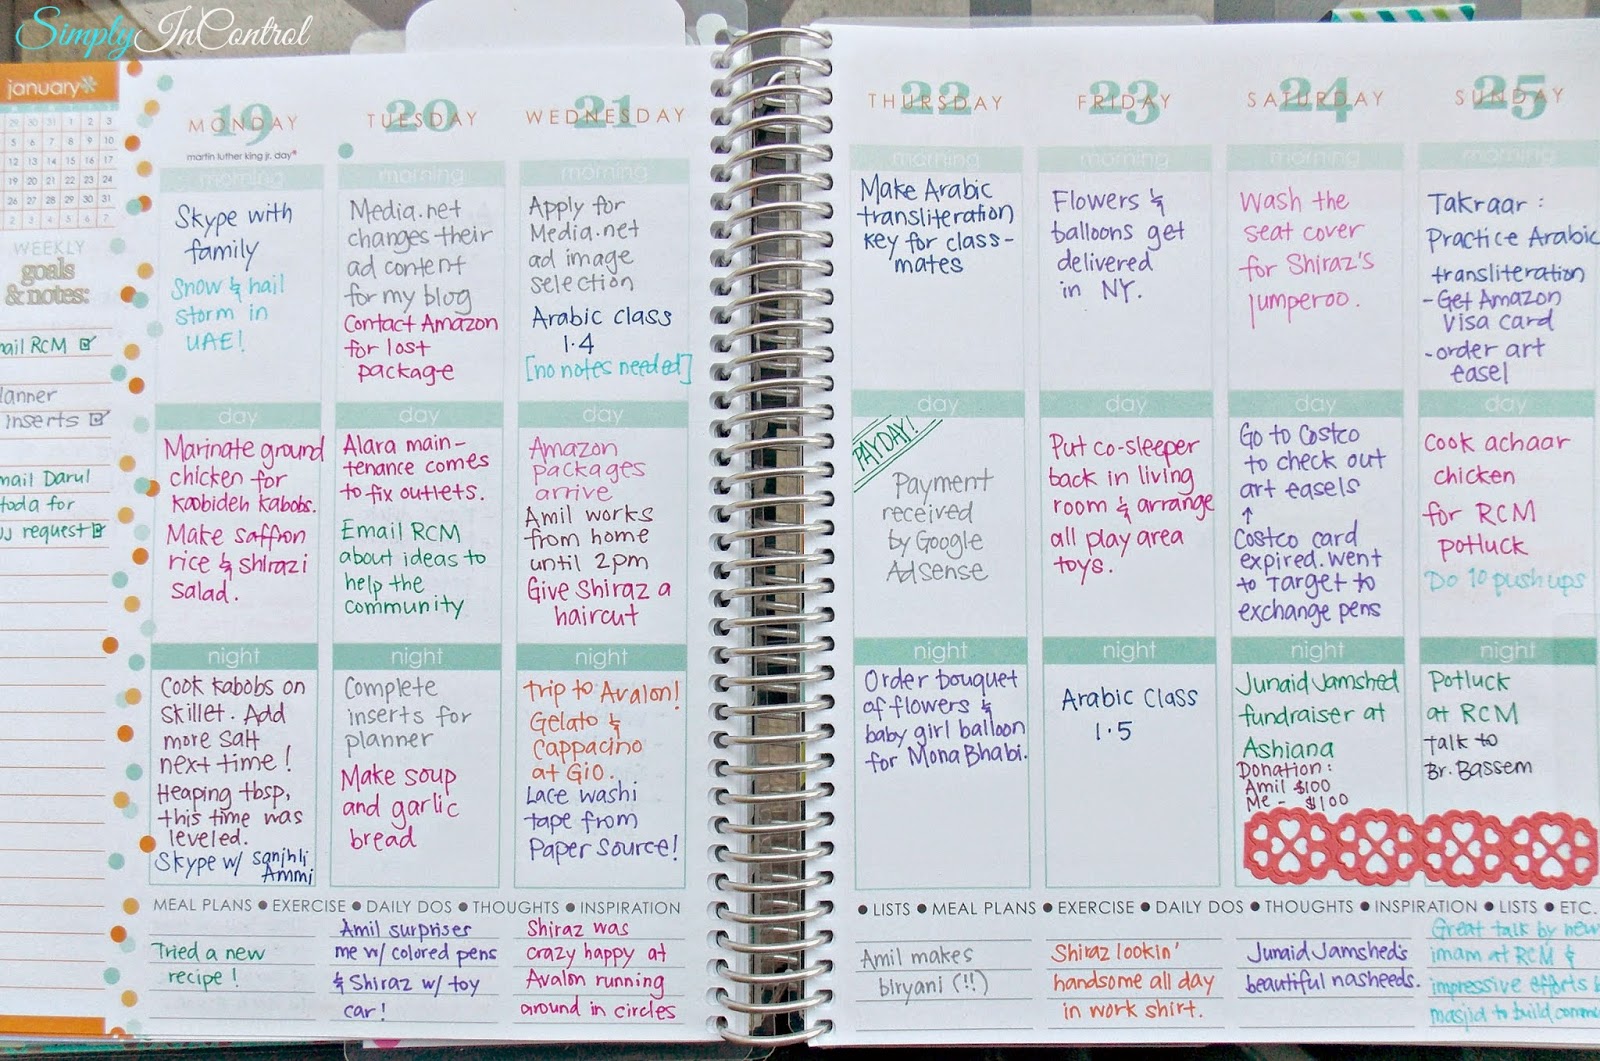 SimplyInControl
january*
29 30 31 1 2 3
5 6 7 8 9 10
12 13 14 15 16 17
19 20 21 22 23 24
26 27 28 29 30 31
2 3 4 5 6 7
WEEKLY
goals
& notes:
RCM
inserts
Darul
for
request
19
MONDAY
martin luther king jr. day*
morning
Skype with
family
Snow & hail
storm in
UAE!
day
Marinate ground
chicken for
koobideh kabobs.
Make saffron
rice & shirazi
salad.
night
Cook kabobs on
skillet. Add
more salt
next time!
Heaping tbsp,
this time was
leveled.
Skype w/ sanjhli
Ammi
20
TUESDAY
morning
Media.net
changes their
ad content
for my blog
Contact Amazon
for lost
package
day
Alara main-
tenance comes
to fix outlets.
Email RCM
about ideas to
help the
community
night
Complete
inserts for
planner
Make soup
and garlic
bread
21
WEDNESDAY
morning
Apply for
Media.net
ad image
selection
Arabic class
1.4
[no notes needed]
day
Amazon
packages
arrive
Amil works
from home
until 2pm
Give Shiraz a
haircut
night
trip to Avalon!
Gelato &
Cappacino
at Gio.
Lace washi
tape from
Paper Source!
MEAL PLANS • EXERCISE • DAILY DOS • THOUGHTS • INSPIRATION
Tried a new
recipe!
Amil surprises
me w/ colored pens
& Shiraz w/ toy
car!
Shiraz was
crazy happy at
Avalon running
around in circles
22
THURSDAY
morning
Make Arabic
transliteration
key for class-
mates
day
PAYDAY!
Payment
received
by Google
AdSense
night
Order bouquet
of flowers &
baby girl balloon
for Mona Bhabi.
23
FRIDAY
morning
Flowers &
balloons get
delivered
in NY.
day
Put co-sleeper
back in living
room & arrange
all play area
toys.
night
Arabic Class
1.5
24
SATURDAY
morning
Wash the
seat cover
for Shiraz's
jumperoo.
day
Go to Costco
to check out
art easels
↑
Costco card
expired. Went
to Target to
exchange pens
night
Junaid Jamshed
fundraiser at
Ashiana
Donation:
Amil $100
Me - $100
25
SUNDAY
morning
Takraar:
Practice Arabic
transliteration
- Get Amazon
Visa card
- order art
easel
day
Cook achaar
chicken
for RCM
potluck
Do 10 push ups
night
Potluck
at RCM
talk to
Br. Bassem
• LISTS • MEAL PLANS • EXERCISE • DAILY DOS • THOUGHTS • INSPIRATION • LISTS • ETC.
Amil makes
biryani (!!)
Shiraz lookin'
handsome all day
in work shirt.
Junaid Jamshed's
beautiful nasheeds.
Great talk by new
imam at RCM &
impressive efforts
masjid to build